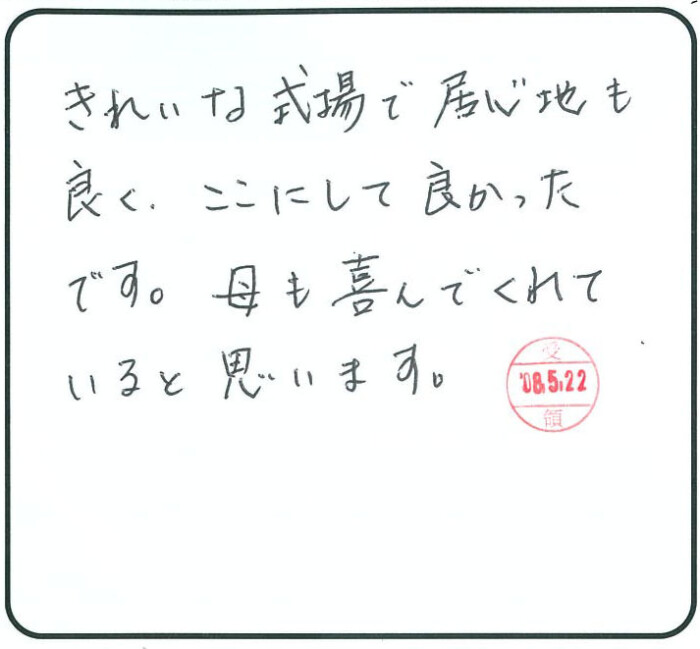 きれいな式場で居心地も
良く、ここにして良かった
です。母も喜んでくれて
いると思います。
受
'08.5.22
領